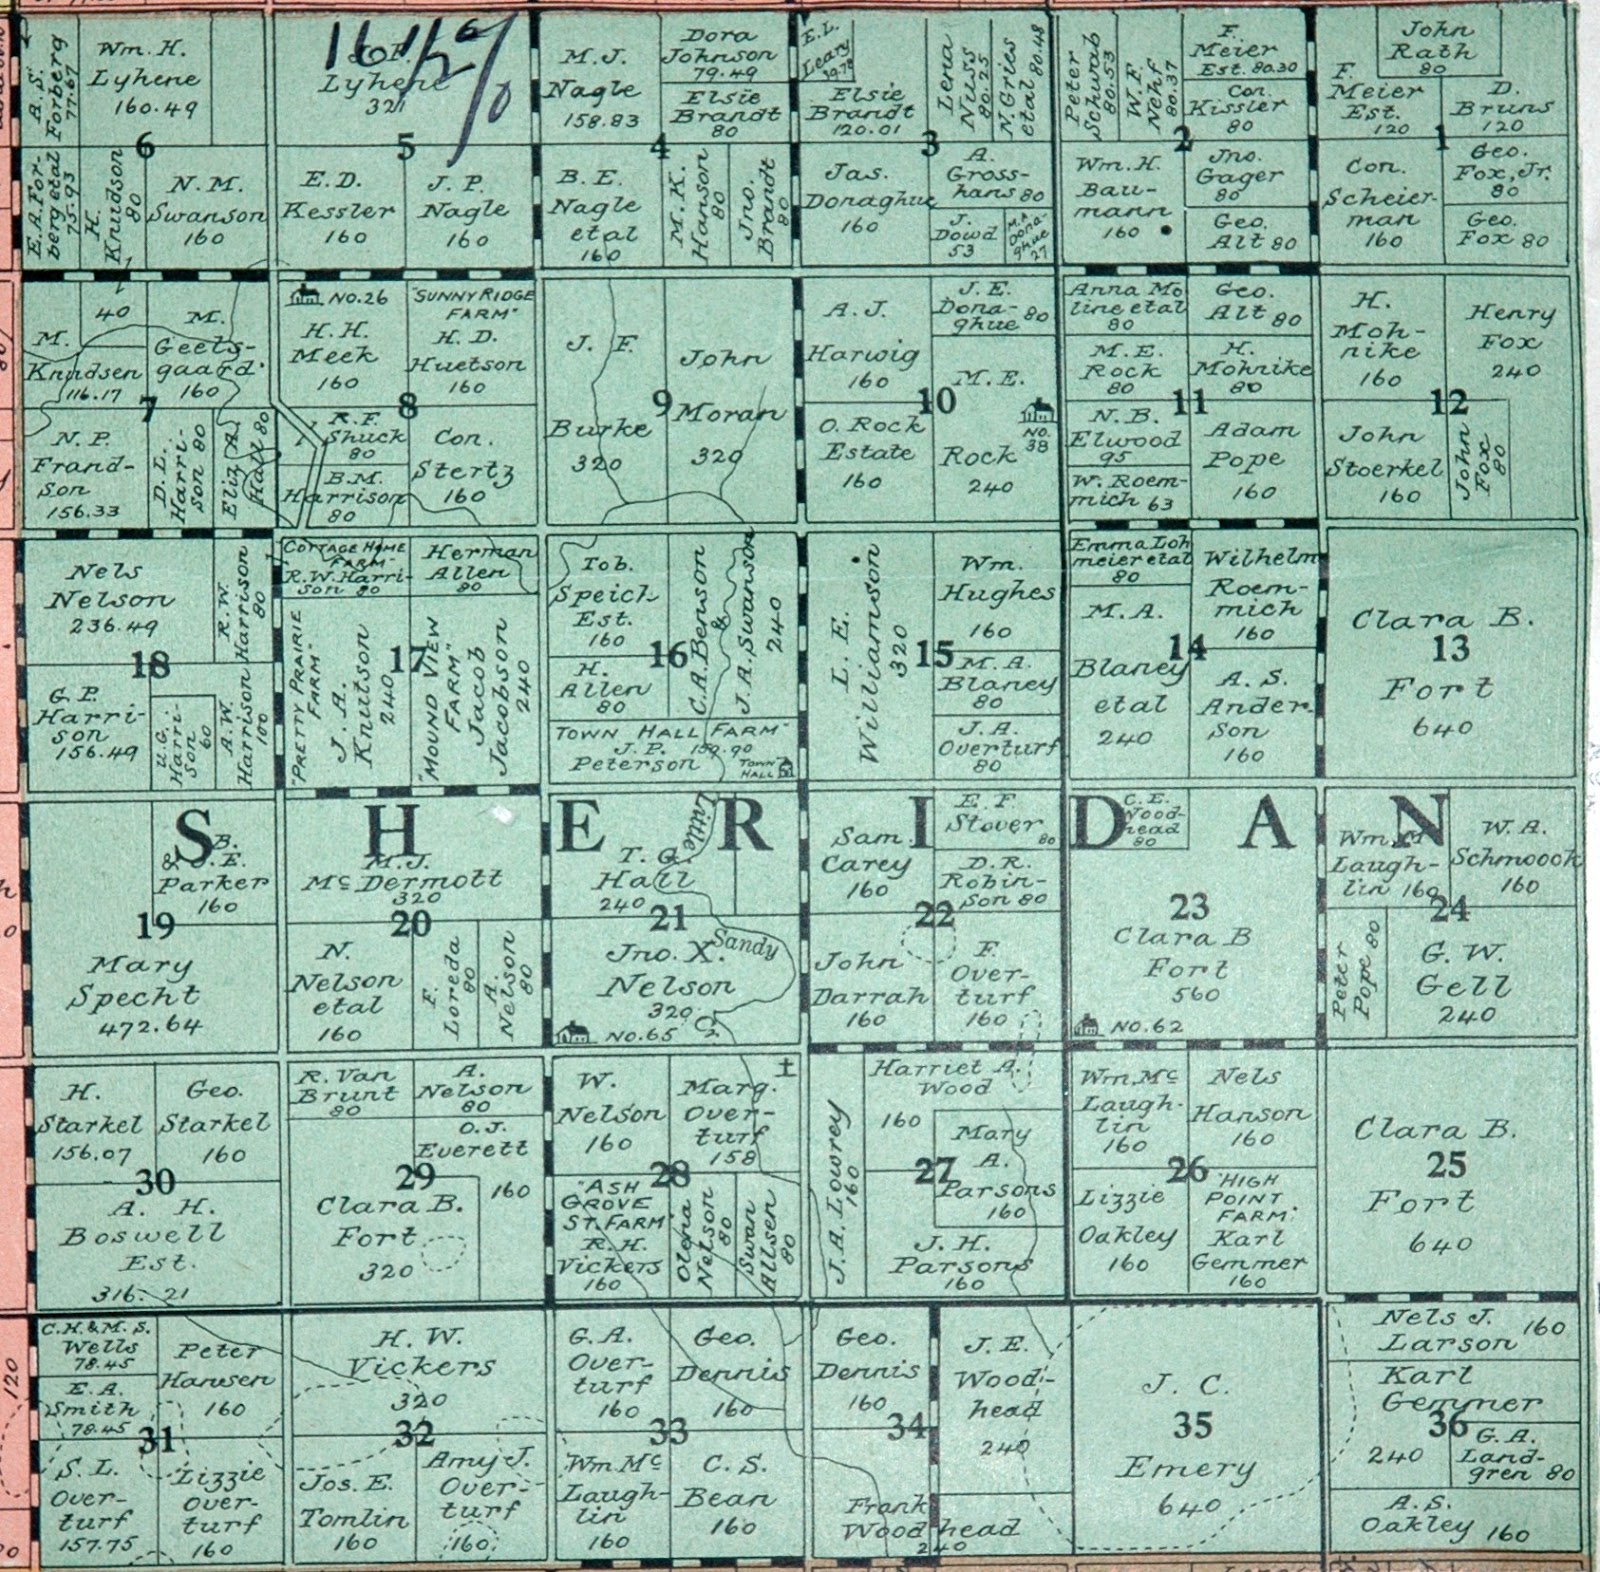 A. S.
Forberg
77.67
Wm. H.
Lyhene
160.49
E.A. For-
berg etal
75.93
H.
Knudson
80
N. M.
Swanson
160
6
Lyhene
321
E.D.
Kessler
160
J. P.
Nagle
160
5
M. J.
Nagle
158.83
Dora
Johnson
79.49
Elsie
Brandt
80
B. E.
Nagle
etal
160
M. K.
Hanson
80
Jno.
Brandt
80
4
E.L.
Leary
39.79
Elsie
Brandt
120.01
Lena
Nuss
80.25
N. Gries
etal 80.48
Jas.
Donaghue
160
A.
Gross-
hans 80
J.
Dowd
53
M.A.
Dona-
ghue
27
3
Peter
Schwab
80.53
W. F.
Nehf
80.37
F.
Meier
Est. 80.30
Con.
Kissler
80
Wm. H.
Bau-
mann
160
Jno.
Gager
80
Geo.
Alt 80
2
John
Rath
80
F.
Meier
Est.
120
D.
Bruns
120
Con.
Scheier-
man
160
Geo.
Fox, Jr.
80
Geo.
Fox 80
1
40
M.
Knudsen
116.17
M.
Geels-
gaard
160
N. P.
Frand-
son
156.33
D. E.
Harri-
son 80
Eliz. A.
Hall 80
7
No. 26
H. H.
Meek
160
"SUNNY RIDGE
FARM"
H. D.
Huetson
160
R. F.
Shuck
80
B.M.
Harrison
80
Con.
Stertz
160
8
J. F.
Burke
320
John
Moran
320
9
A. J.
Harwig
160
J. E.
Dona-
ghue 80
O. Rock
Estate
160
M. E.
Rock
240
No.
38
10
Anna Mo
line etal
80
Geo.
Alt 80
M. E.
Rock
80
H.
Mohnike
80
N. B.
Elwood
95
W. Roem-
mich 63
Adam
Pope
160
11
H.
Moh-
nike
160
Henry
Fox
240
John
Stoerkel
160
John
Fox
80
12
Nels
Nelson
236.49
R. W.
Harrison
80
G. P.
Harri-
son
156.49
U. G.
Harri-
son
60
A. W.
Harrison
100
18
"COTTAGE HOME
FARM"
R.W. Harri-
son 80
Herman
Allen
80
"PRETTY PRAIRIE
FARM"
J. A.
Knutson
240
"MOUND VIEW
FARM"
Jacob
Jacobson
240
17
Tob.
Speich
Est.
160
H.
Allen
80
C.A. Benson
&
J. A. Swanson
240
"TOWN HALL FARM"
J. P. 159.90
Peterson
TOWN
HALL
16
L. E.
Williamson
320
Wm.
Hughes
160
M. A.
Blaney
80
J. A.
Overturf
80
15
Emma Loh
meier etal
80
Wilhelm
Roem-
mich
160
M. A.
Blaney
etal
240
A. S.
Ander-
son
160
14
Clara B.
13
Fort
640
SHERIDAN
B.
& J. E.
Parker
160
19
Mary
Specht
472.64
M. J.
McDermott
320
20
N.
Nelson
etal
160
F.
Loreda
80
A.
Nelson
80
T. G.
Hall
240
Little
21
Sandy
Jno. X.
Nelson
320
No. 65
Sam
Carey
160
E. F.
Stover
80
D. R.
Robin-
son 80
22
John
Darrah
160
F.
Over-
turf
160
C. E.
Wood-
head
80
23
Clara B
Fort
560
No. 62
Wm. M
Laugh-
lin 160
W. A.
Schmoock
160
24
Peter
Pope 80
G. W.
Gell
240
H.
Starkel
156.07
Geo.
Starkel
160
30
A. H.
Boswell
Est.
316.21
R. Van
Brunt
80
A.
Nelson
80
O. J.
Everett
160
29
Clara B.
Fort
320
W.
Nelson
160
Marg.
Over-
turf
158
28
"ASH
GROVE
ST. FARM"
R. H.
Vickers
160
Olena
Nelson
80
Swan
Allsen
80
Harriet A.
Wood
160
J. A. Lowrey
160
27
Mary
A.
Parsons
160
J. H.
Parsons
160
Wm. Mc
Laugh-
lin
160
Nels
Hanson
160
26
Lizzie
Oakley
160
"HIGH
POINT
FARM"
Karl
Gemmer
160
Clara B.
25
Fort
640
C.H. & M. S.
Wells
78.45
E. A.
Smith
78.45
Peter
Hansen
160
31
S. L.
Over-
turf
157.75
Lizzie
Over-
turf
160
H. W.
Vickers
320
32
Jos. E.
Tomlin
160
Amy J.
Over-
turf
160
G. A.
Over-
turf
160
Geo.
Dennis
160
33
Wm Mc
Laugh-
lin
160
C. S.
Bean
160
Geo.
Dennis
160
34
J. E.
Wood-
head
240
Frank
Woodhead
240
J. C.
35
Emery
640
Nels J.
Larson 160
Karl
Gemmer
240
36
G. A.
Land-
gren 80
A. S.
Oakley 160
120